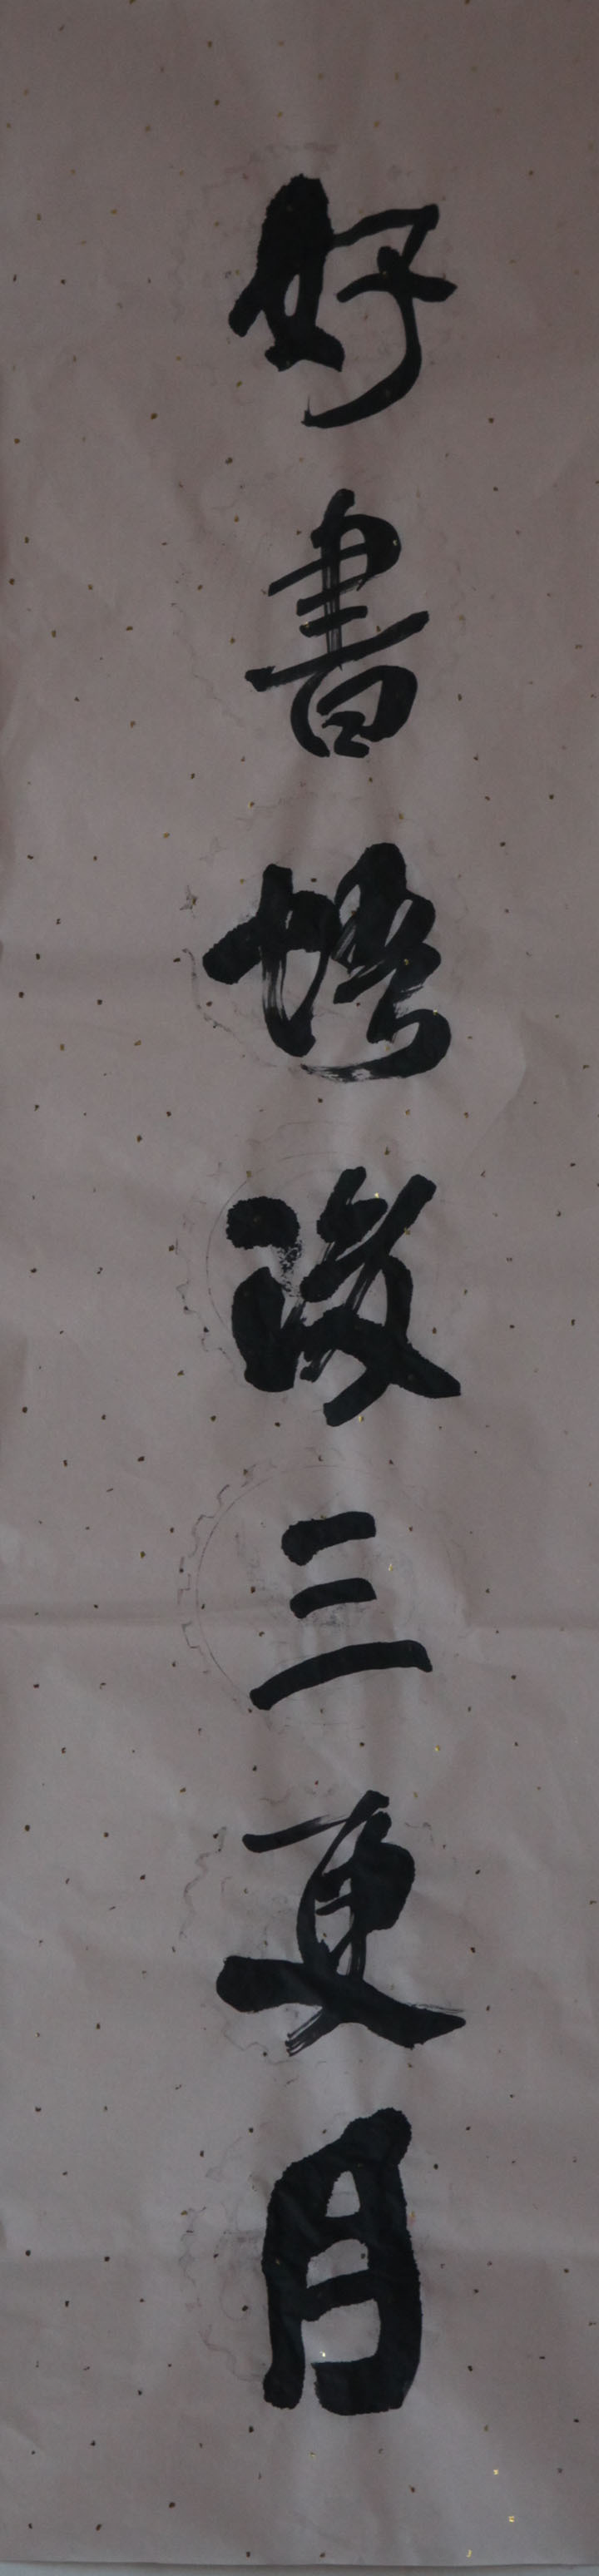 好書悟後三更月